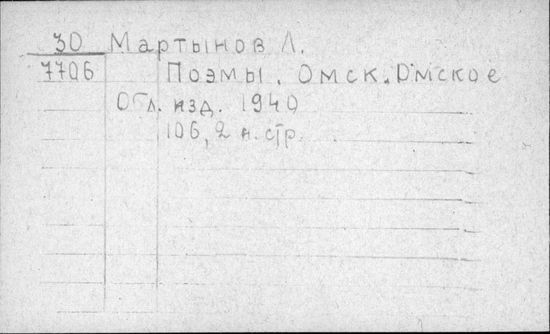 30 Мартынов Л.
7706 Поэмы. Омск. Омское
Обл. изд. 1940
106, 2 н. стр.